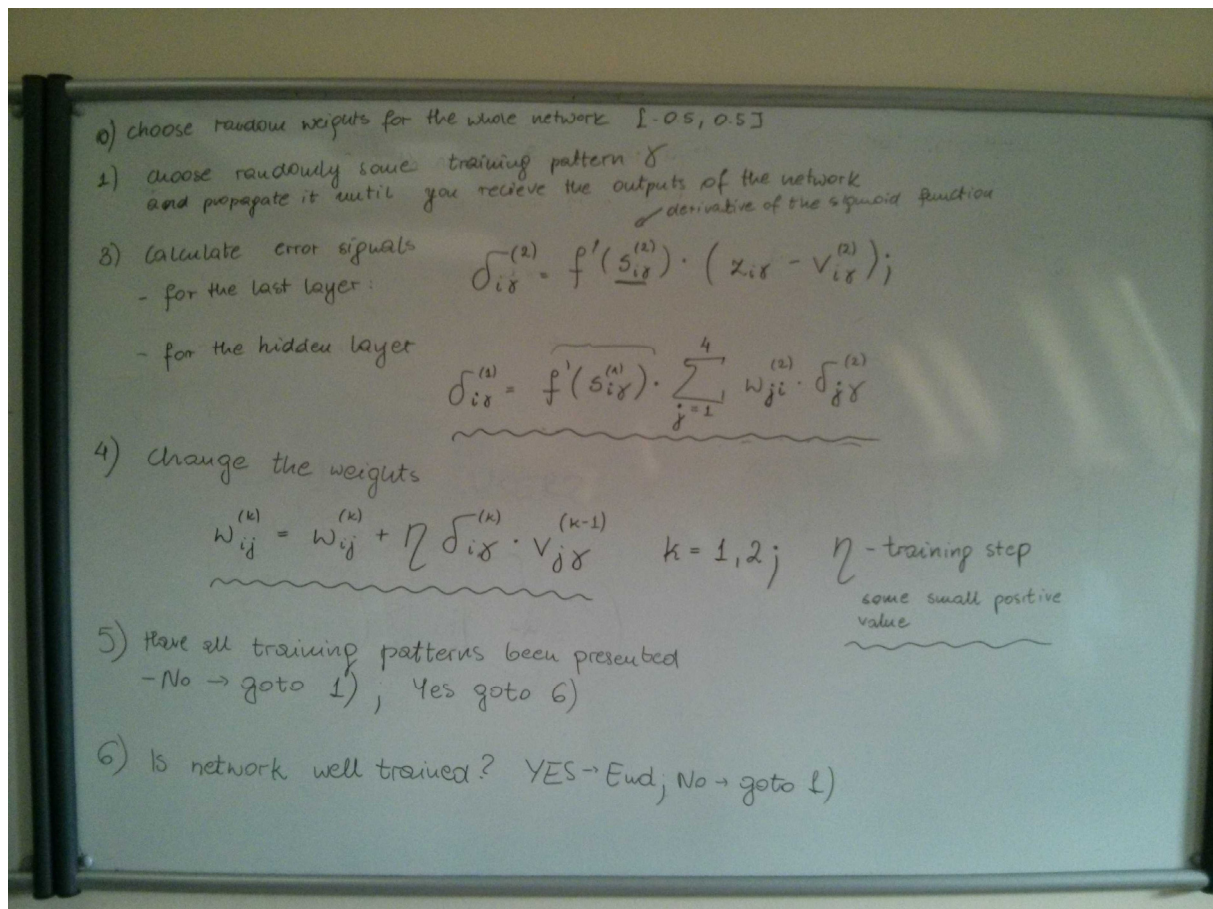 0) choose random weights for the whole network [-0.5, 0.5]
1) choose randomly some training pattern γ
and propagate it until you recieve the outputs of the network
derivative of the sigmoid function
3) Calculate error signals
- for the last layer:
δ_{iγ}^{(2)} = f'(s_{iγ}^{(2)}) · (z_{iγ} - v_{iγ}^{(2)});
- for the hidden layer
δ_{iγ}^{(1)} = f'(s_{iγ}^{(1)}) · Σ_{j=1}^{4} w_{ji}^{(2)} · δ_{jγ}^{(2)}
4) Change the weights
w_{ij}^{(k)} = w_{ij}^{(k)} + η δ_{iγ}^{(k)} · v_{jγ}^{(k-1)} k = 1,2; η - training step
some small positive
value
5) Have all training patterns been presented
- No → goto 1), Yes goto 6)
6) Is network well trained? YES → End; No → goto 1)